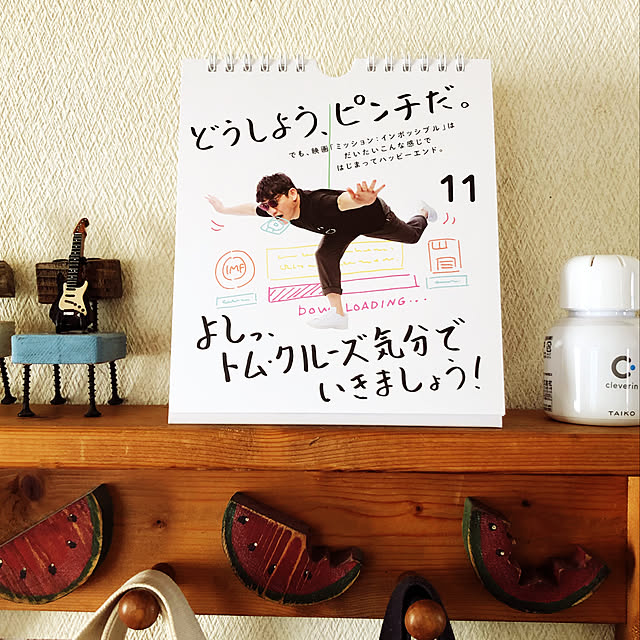 どうしよう、ピンチだ。
でも、映画「ミッション:インポッシブル」は
だいたいこんな感じで
はじまってハッピーエンド。
11
IMF
DOWNLOADING...
よしっ、
トム・クルーズ気分で
いきましょう!
cleverin
TAIKO